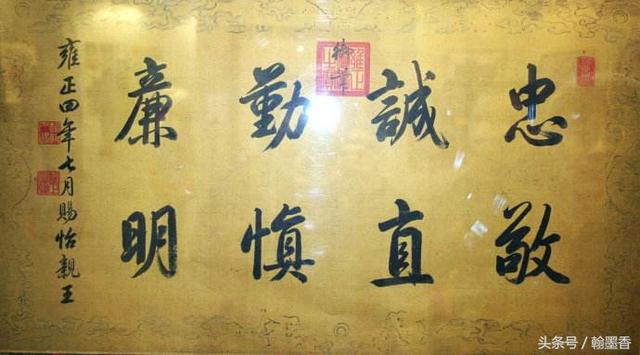 御筆
忠敬
誠直
勤慎
廉明
雍正四年七月賜怡親王
头条号 / 翰墨香